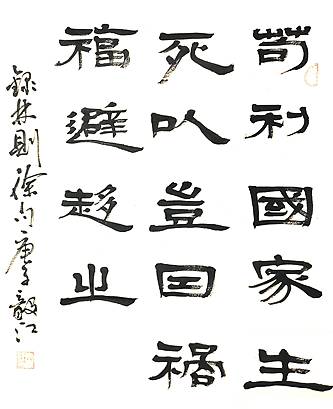 苟利國家生
死以豈因禍
福避趨之
録林則徐句庚子毅江